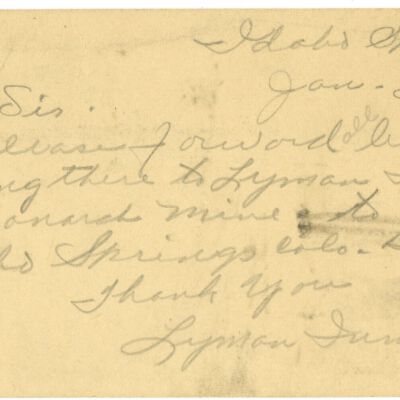 Idaho S
Jan.
Sir.
lease forword all
ng there to Lyman
onarch Mine to
ho Springs colo.
Thank You
Lyman